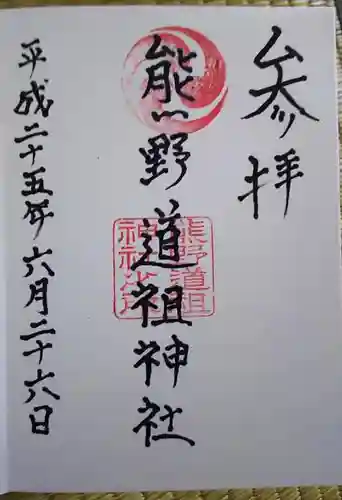 参拝
熊野道祖神社
熊野道祖
神社之印
平成二十五年六月二十六日